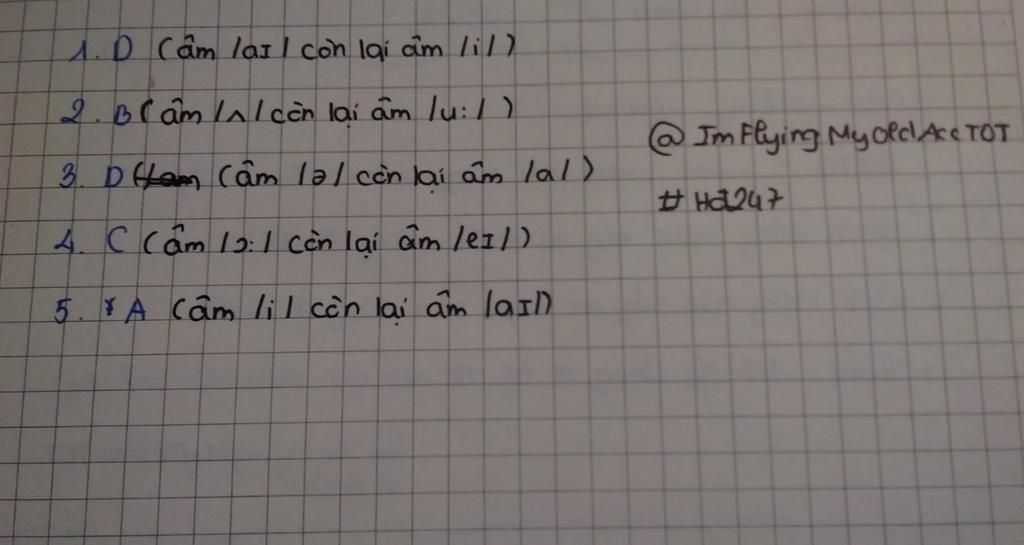 1. D (âm /aɪ/ còn lại âm /i/)
2. B (âm /ʌ/ còn lại âm /u:/)
@ImFlyingMyOldAccTOT
3. D (âm /ə/ còn lại âm /a/)
#Hd247
4. C (âm /ɔ:/ còn lại âm /eɪ/)
5. A (âm /i/ còn lại âm /aɪ/)